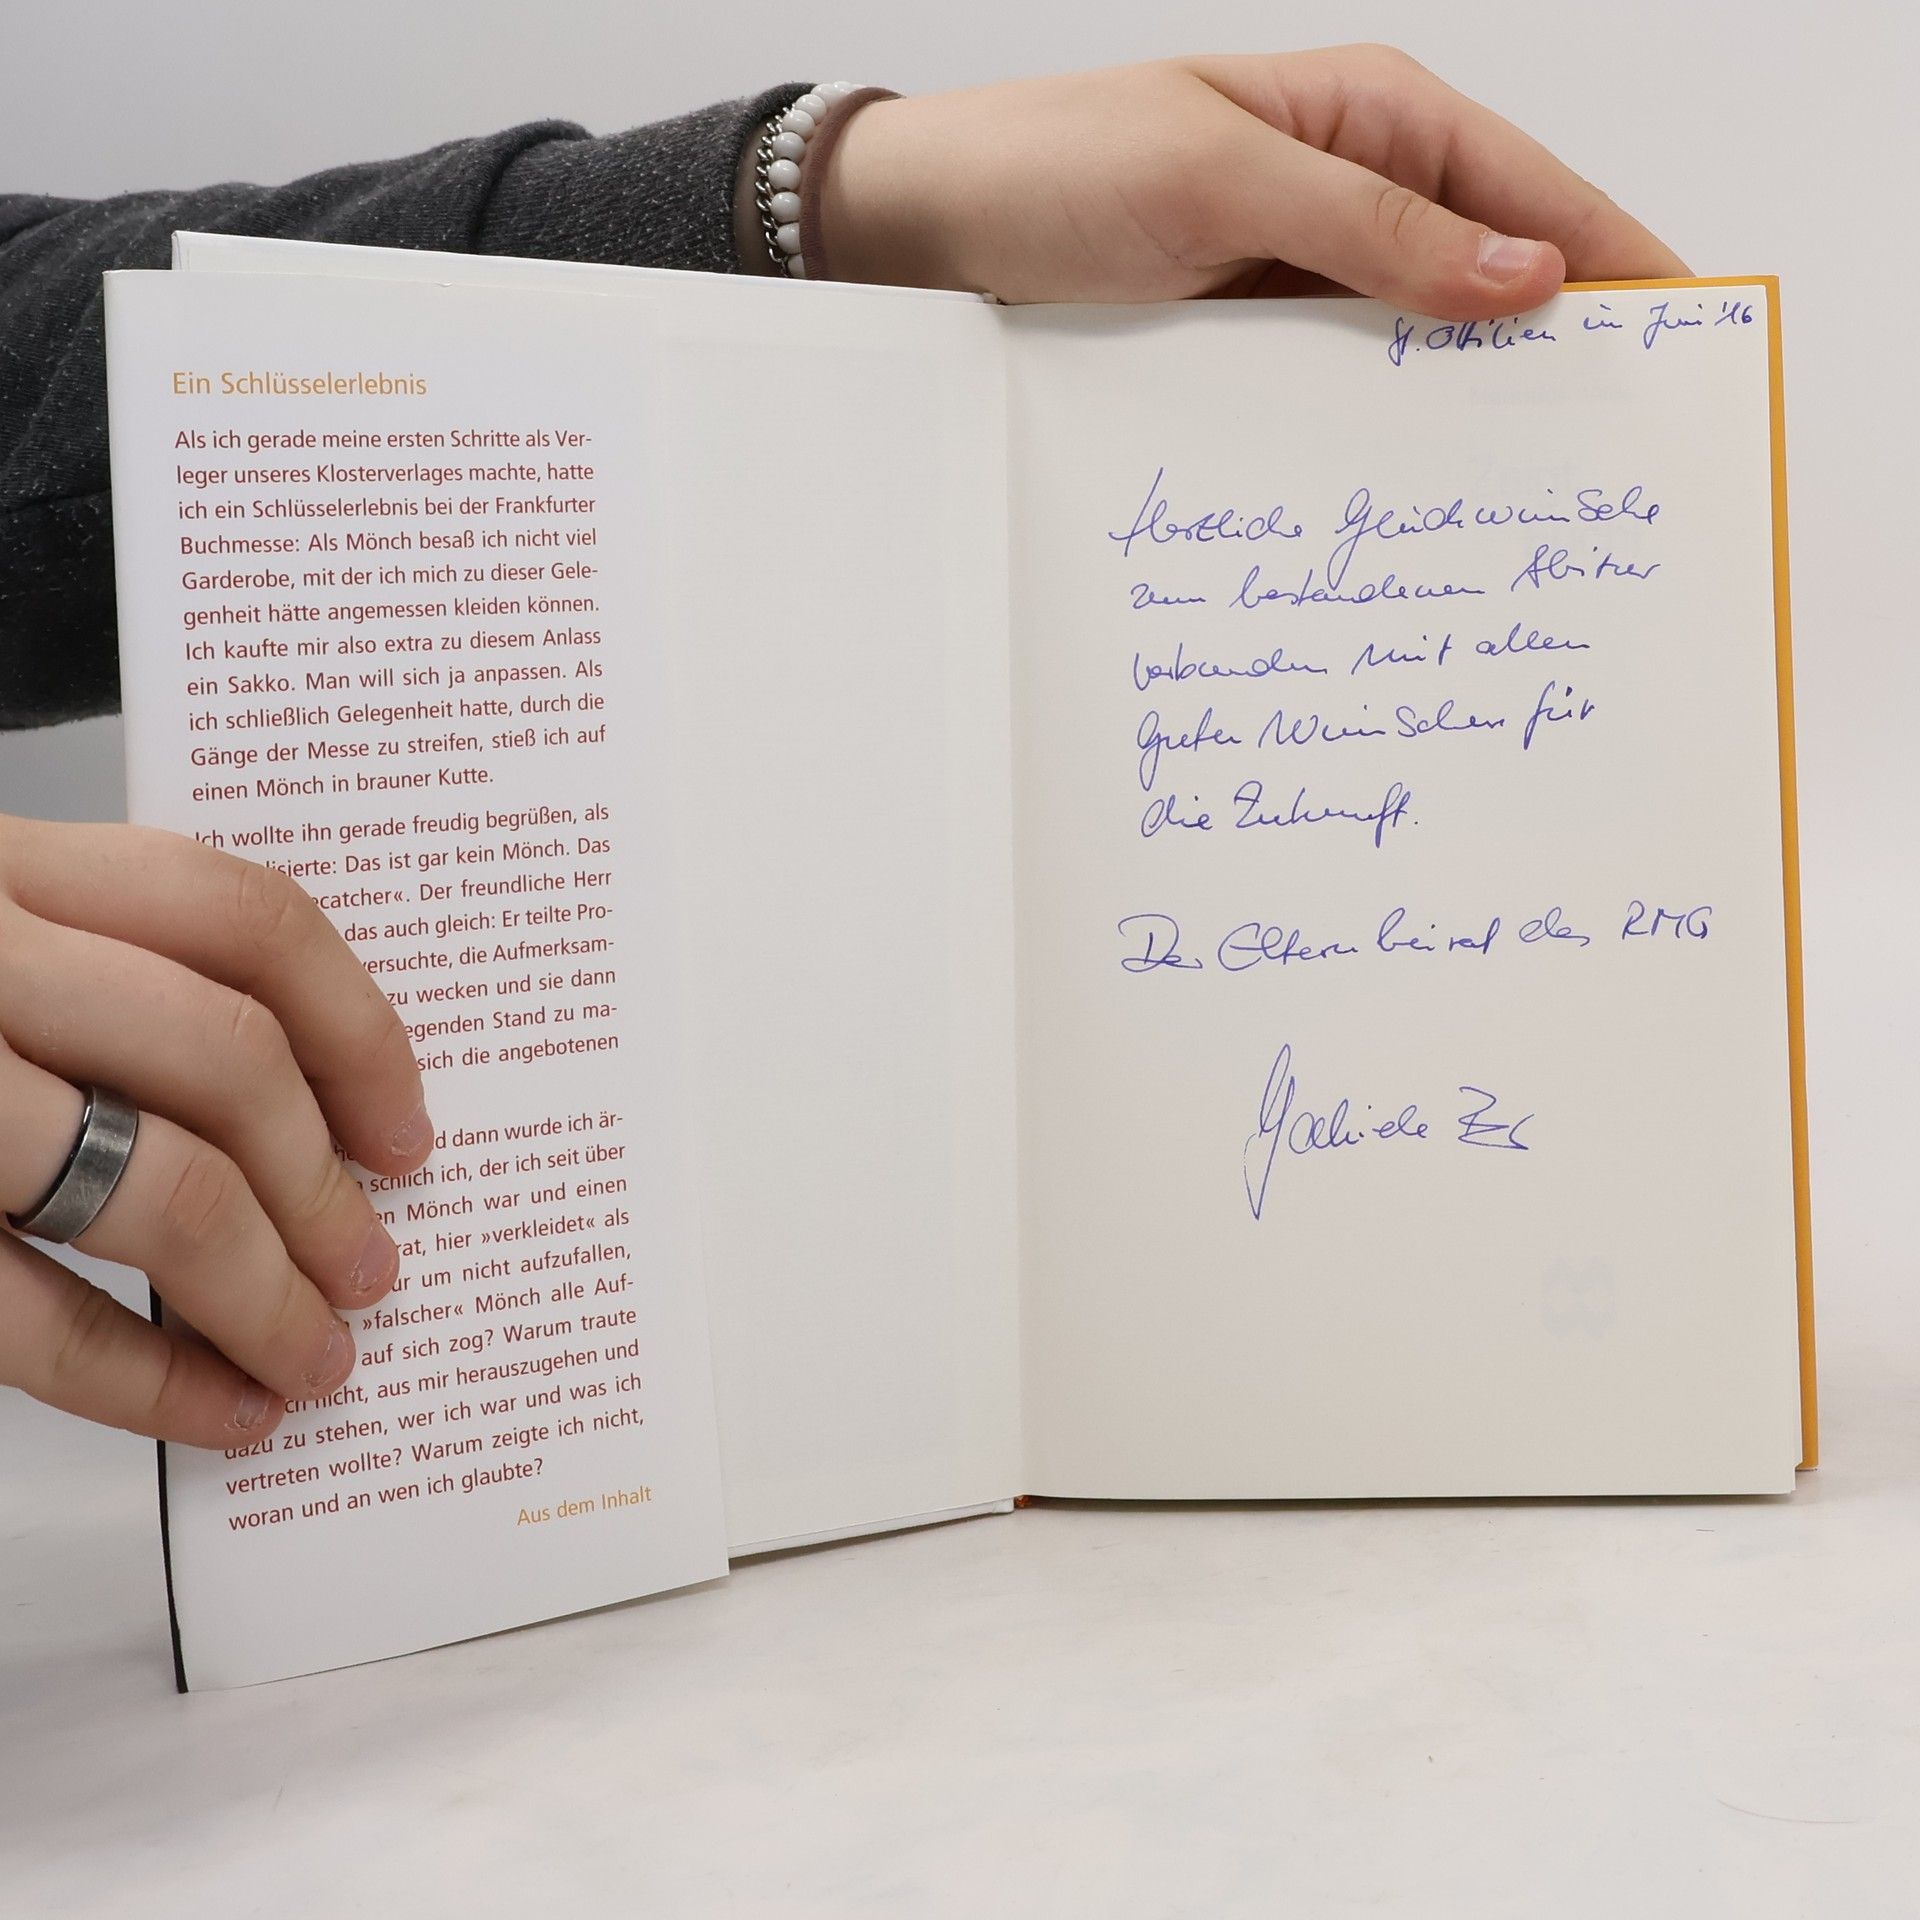 Ein Schlüsselerlebnis
Als ich gerade meine ersten Schritte als Ver-
leger unseres Klosterverlages machte, hatte
ich ein Schlüsselerlebnis bei der Frankfurter
Buchmesse: Als Mönch besaß ich nicht viel
Garderobe, mit der ich mich zu dieser Gele-
genheit hätte angemessen kleiden können.
Ich kaufte mir also extra zu diesem Anlass
ein Sakko. Man will sich ja anpassen. Als
ich schließlich Gelegenheit hatte, durch die
Gänge der Messe zu streifen, stieß ich auf
einen Mönch in brauner Kutte.
Ich wollte ihn gerade freudig begrüßen, als
Das ist gar kein Mönch. Das
Der freundliche Herr
das auch gleich: Er teilte Pro-
versuchte, die Aufmerksam-
zu wecken und sie dann
Stand zu ma-
sich die angebotenen
dann wurde ich är-
schlich ich, der ich seit über
Mönch war und einen
hier »verkleidet« als
um nicht aufzufallen,
»falscher« Mönch alle Auf-
auf sich zog? Warum traute
nicht, aus mir herauszugehen und
dazu zu stehen, wer ich war und was ich
vertreten wollte? Warum zeigte ich nicht,
woran und an wen ich glaubte?
Aus dem Inhalt
St. Ottilien im Juni '16
Herzliche Glückwünsche
zum bestandenen Abitur
verbunden mit allen
Guten Wünschen für
die Zukunft.
Der Elternbeirat des RMG
Gabriele